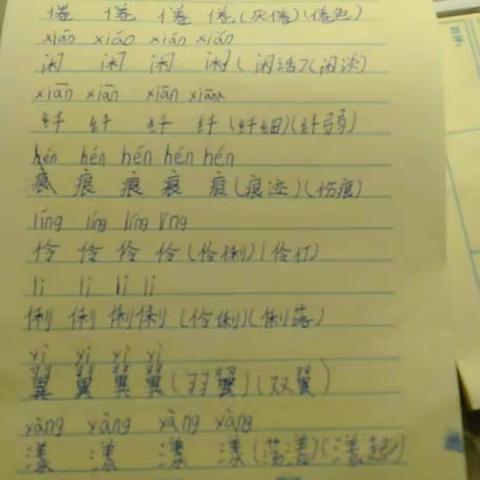 倦 倦 倦 倦(厌倦)(倦怠)
xián xián xián xián
闲 闲 闲 闲(闲话)(闲谈)
xiān xiān xiān xiān
纤 纤 纤 纤(纤细)(纤弱)
hén hén hén hén hén
痕 痕 痕 痕 痕(痕迹)(伤痕)
líng líng líng líng
伶 伶 伶 伶(伶俐)(伶仃)
lì lì lì lì
俐 俐 俐 俐(伶俐)(俐落)
yì yì yì yì
翼 翼 翼 翼(羽翼)(双翼)
yàng yàng yàng yàng
漾 漾 漾 漾(荡漾)(漾起)